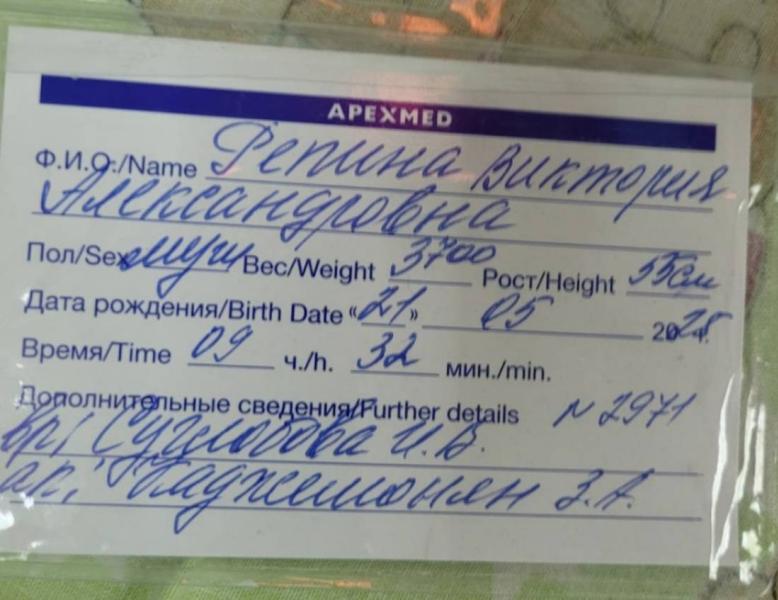 APEXMED
Ф.И.О./Name Репина Виктория
Александровна
Пол/Sex муж Вес/Weight 3700 Рост/Height 55см
Дата рождения/Birth Date «21» 05 2025г.
Время/Time 09 ч./h. 32 мин./min.
Дополнительные сведения/Further details N 2971
вр; И.В.
ак; З.А.